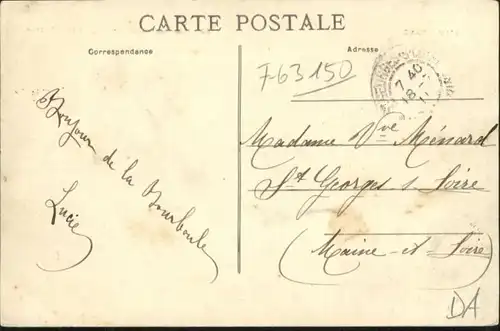 CARTE POSTALE
Correspondance
Adresse
F63150
7 40
18
Bonjour de la Bourboule
Lucie
Madame Vve Ménard
St Georges s Loire
(Maine-et-Loire)
DA